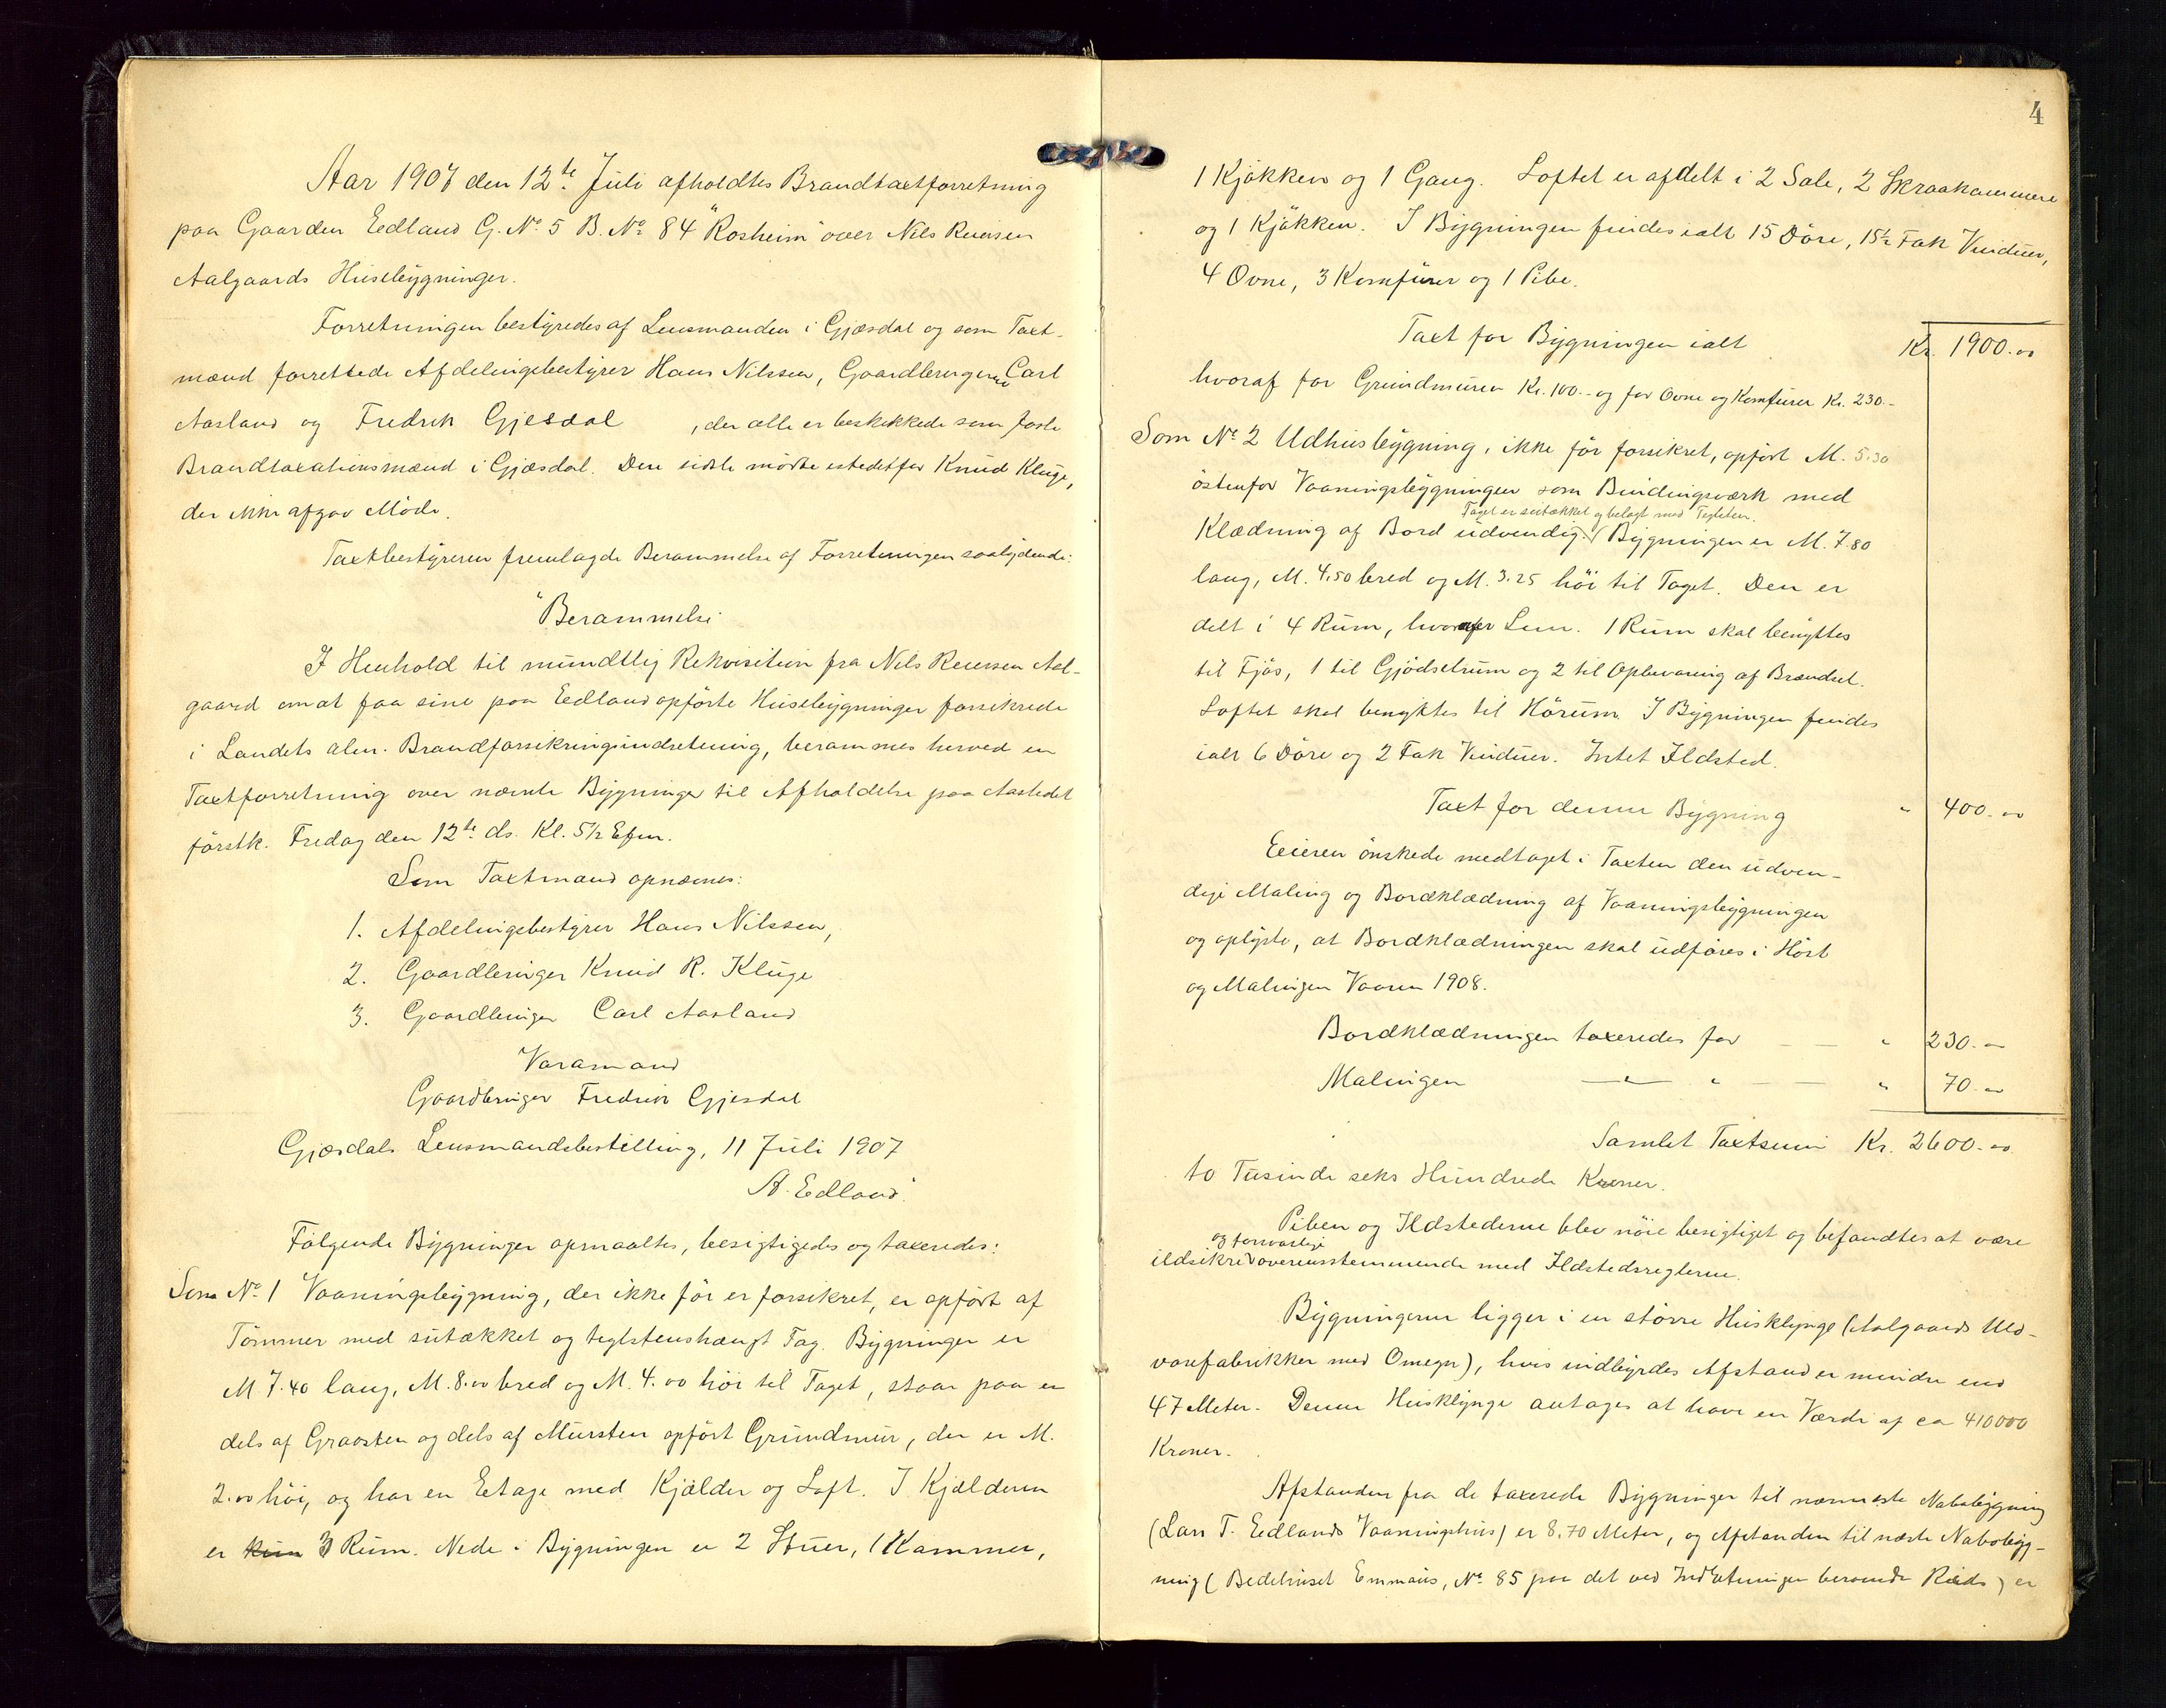 Aar 1907 den 12te Juli afholdtes Brandtaxtforretning
paa Gaarden Eedland G. No 5 B. No 84 "Rosheim" over Nils Reiersen
Aalgaards Husebygninger.
Forretningen bestyredes af Lensmanden i Gjæsdal og som Taxt-
mænd forrettede Afdelingsbestyrer Hans Nilssen, Gaardbrugerne Carl
Aasland og Fredrik Gjesdal, der alle er beskikkede som faste
Brandtaxationsmænd i Gjæsdal. Den sidste mødte istedetfor Knud Kluge,
der ikke afgav Møde.
Taxtbestyreren fremlagde Berammelse af Forretningen saalydende:
"Berammelse
I Henhold til mundtlig Rekvisition fra Nils Reiersen Aal-
gaard om at faa sine paa Eedland opførte Husebygninger forsikrede
i Landets alm. Brandforsikringsindretning, berammes herved en
Taxtforretning over nævnte Bygninger til Afholdelse paa Aastedet
førstk. Fredag den 12te ds. Kl. 5½ Efm.
Som Taxtmænd opnævnes:
1. Afdelingsbestyrer Hans Nilssen,
2. Gaardbruger Knud R. Kluge
3. Gaardbruger Carl Aasland
Varamand
Gaardbruger Fredrik Gjesdal
Gjæsdals Lensmandsbestilling, 11 Juli 1907
A. Edland."
Følgende Bygninger opmaaltes, besigtigedes og taxeredes:
Som No 1 Vaaningsbygning, der ikke før er forsikret, er opført af
Tømmer med sutækket og teglstenshængt Tag. Bygningen er
M 7.40 lang, M. 8.00 bred og M. 4.00 høi til Taget, staar paa en
dels af Graasten og dels af Mursten opført Grundmur, der er M.
2.00 høi, og har en Eetage med Kjælder og Loft. I Kjælderen
er kun 3 Rum. Nede i Bygningen er 2 Stuer, 1 Kammer,
4
1 Kjøkken og 1 Gang. Loftet er afdelt i 2 Sale, 2 Skraakammere
og 1 Kjøkken. I Bygningen findes ialt 15 Døre, 15½ Fak Vinduer,
4 Ovne, 3 Komfurer og 1 Pibe.
Taxt for Bygningen ialt Kr. 1900.00
hvoraf for Grundmuren Kr. 100.- og for Ovne og Komfurer Kr. 230.-
Som No 2 Udhusbygning, ikke før forsikret, opført M. 5.30
østenfor Vaaningsbygningen som Bindingsværk med
Taget er sutækket og belagt med Teglsten.
Klædning af Bord udvendig. Bygningen er M. 7.80
lang, M. 4.50 bred og M. 3.25 høi til Taget. Den er
delt i 4 Rum, hvorover Lem. 1 Rum skal benyttes
til Fjøs, 1 til Gjødselrum og 2 til Opbevaring af Brændsel.
Loftet skal benyttes til Hørum. I Bygningen findes
ialt 6 Døre og 2 Fak Vinduer. Intet Ildsted.
Taxt for denne Bygning " 400.00
Eeieren ønskede medtaget i Taxten den udven-
dige Maling og Bordklædning af Vaaningsbygningen
og oplyste, at Bordklædningen skal udføres i Høst
og Malingen Vaaren 1908.
Bordklædningen taxeredes for — — " 230.00
Malingen — " — " — — " 70.00
Samlet Taxtsum Kr. 2600.00
to Tusinde seks Hundrede Kroner.
Piben og Ildstederne blev nøie besigtiget og befandtes at være
og forsvarlige
ildsikre overensstemmende med Ildstedsreglerne.
Bygningerne ligger i en større Husklynge (Aalgaards Uld-
varefabrikker med Omegn), hvis indbyrdes Afstand er mindre end
47 Meter. Denne Husklynge antages at have en Værdi af ca 410000
Kroner.
Afstanden fra de taxerede Bygninger til nærmeste Nabobygning
(Lars T. Eedlands Vaaningshus) er 8.70 Meter, og Afstanden til næste Nabobyg-
ning (Bedehuset Emmaus, No 85 paa det ved Indretningen beroende Rids) er